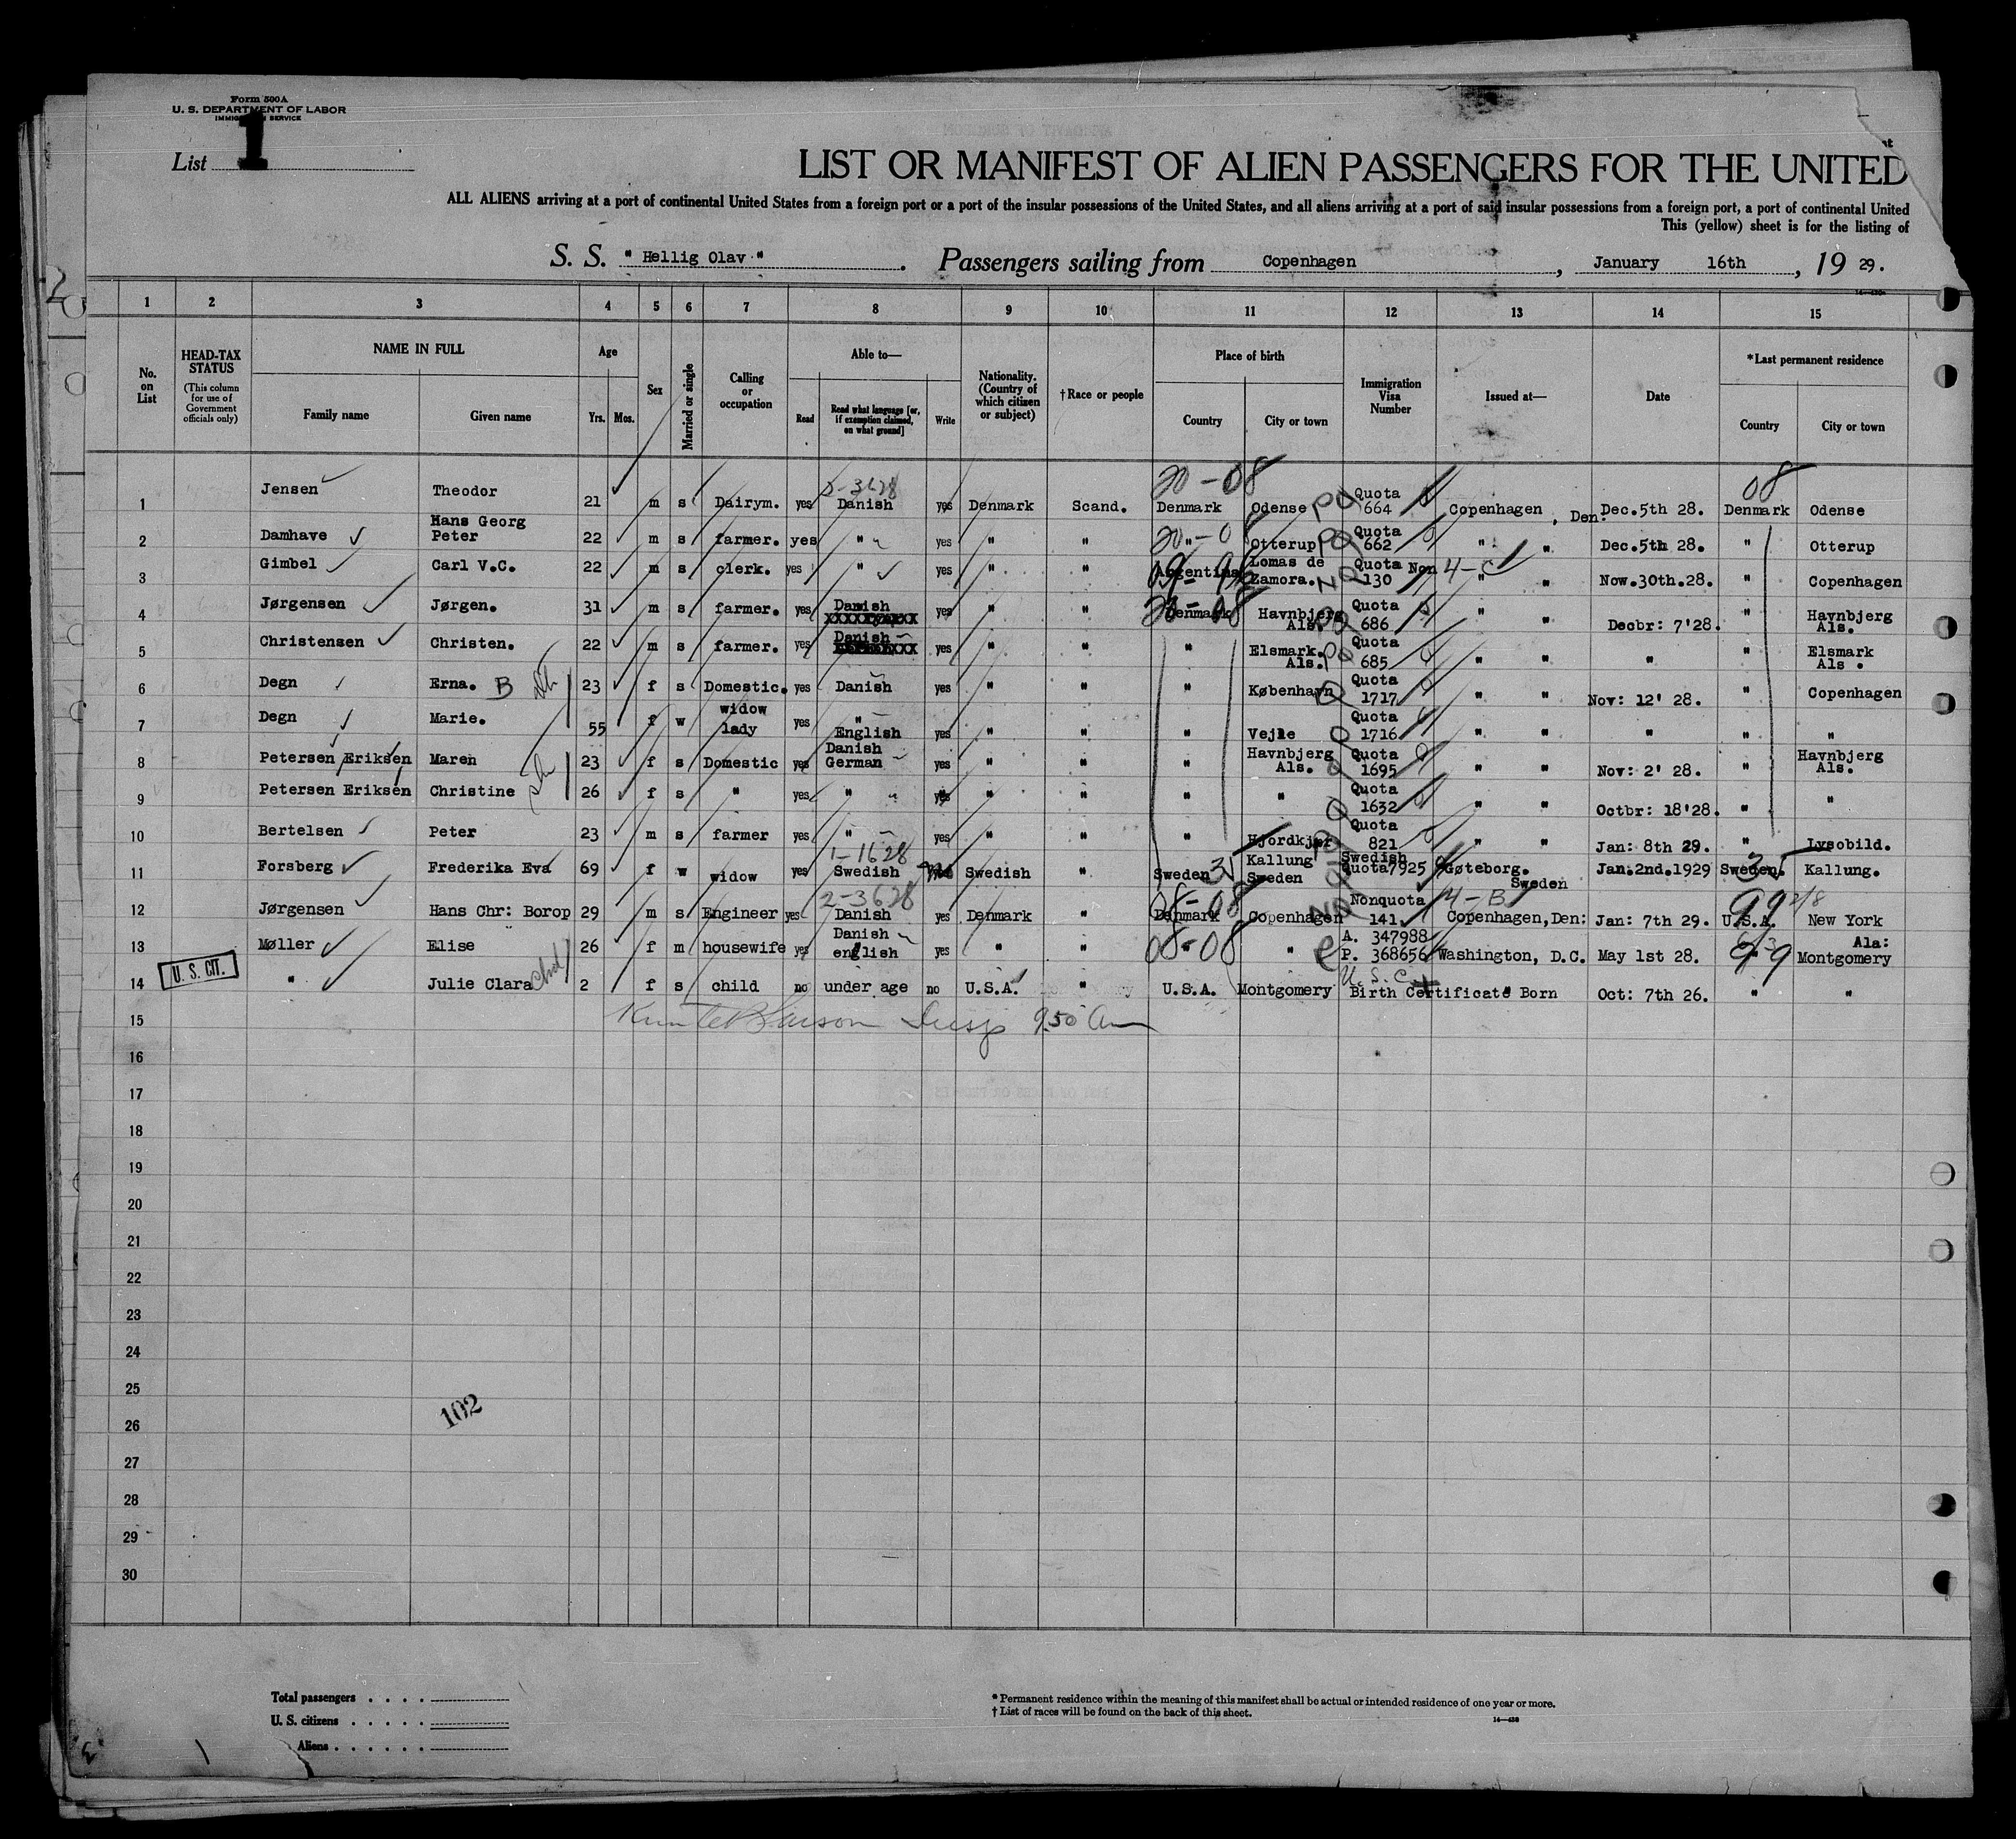 Form 500A
U. S. DEPARTMENT OF LABOR
IMMIGRATION SERVICE
List 1
LIST OR MANIFEST OF ALIEN PASSENGERS FOR THE UNITED
ALL ALIENS arriving at a port of continental United States from a foreign port or a port of the insular possessions of the United States, and all aliens arriving at a port of said insular possessions from a foreign port, a port of continental United
This (yellow) sheet is for the listing of
S. S. "Hellig Olav". Passengers sailing from Copenhagen, January 16th, 19 29.
1 2 3 4 5 6 7 8 9 10 11 12 13 14 15
No. on List
HEAD-TAX STATUS (This column for use of Government officials only)
NAME IN FULL Family name Given name
Age Yrs. Mos.
Sex
Married or single
Calling or occupation
Able to— Read Read what language [or, if exemption claimed, on what ground] Write
Nationality. (Country of which citizen or subject)
†Race or people
Place of birth Country City or town
Immigration Visa Number
Issued at—
Date
*Last permanent residence Country City or town
2-3628 20-08 08
1 Jensen Theodor 21 m s Dairym. yes Danish yes Denmark Scand. Denmark Odense Quota 664 Copenhagen, Den: Dec.5th 28. Denmark Odense
2 Damhave Hans Georg Peter 22 m s farmer. yes " yes " " " Otterup Quota 662 " " Dec.5th 28. " Otterup
3 Gimbel Carl V.C. 22 m s clerk. yes " yes " " Argentina Lomas de Zamora. Quota Non 130 4-C " " Now.30th.28. " Copenhagen
4 Jørgensen Jørgen. 31 m s farmer. yes Danish yes " " Denmark 20-08 Havnbjerg Als. Quota 686 " " Decbr: 7'28. " Havnbjerg Als.
5 Christensen Christen. 22 m s farmer. yes Danish yes " " " Elsmark. Als. Quota 685 " " " " Elsmark Als.
6 Degn Erna. B 23 f s Domestic. yes Danish yes " " " København Quota 1717 " " Nov: 12' 28. " Copenhagen
7 Degn Marie. 55 f w widow lady yes " English yes " " " Vejle Quota 1716 " " " " "
8 Petersen Eriksen Maren 23 f s Domestic yes Danish German yes " " " Havnbjerg Als. Quota 1695 " " Nov: 2' 28. " Havnbjerg Als.
9 Petersen Eriksen Christine 26 f s " yes " yes " " " " Quota 1632 " " Octbr: 18'28. " "
10 Bertelsen Peter 23 m s farmer yes " yes " " " Hjordkjær Quota 821 " " Jan: 8th 29. " Lysobild.
1-1628
11 Forsberg Frederika Eva 69 f w widow yes Swedish Swedish " Sweden Kallung Sweden Swedish Quota7925 Gøteborg. Sweden Jan.2nd.1929 Sweden. Kallung.
2-3628 4-B
12 Jørgensen Hans Chr: Borop 29 m s Engineer yes Danish yes Denmark " Denmark Copenhagen Nonquota 141 Copenhagen, Den: Jan: 7th 29. U.S.A. 99 New York
13 Møller Elise 26 f m housewife yes Danish english yes " " 08-08 " A. 347988 P. 368656 Washington, D.C. May 1st 28. Ala: Montgomery
U.S.C.
U. S. CIT. 14 " Julie Clara Chd 2 f s child no under age no U.S.A. " U.S.A. Montgomery Birth Certificate Born Oct: 7th 26. " "
15 Insp 9.50 Am
16
17
18
19
20
21
22
23
24
25
102
26
27
28
29
30
Total passengers . . . .
U. S. citizens . . . . .
Aliens . . . . . .
* Permanent residence within the meaning of this manifest shall be actual or intended residence of one year or more.
† List of races will be found on the back of this sheet.